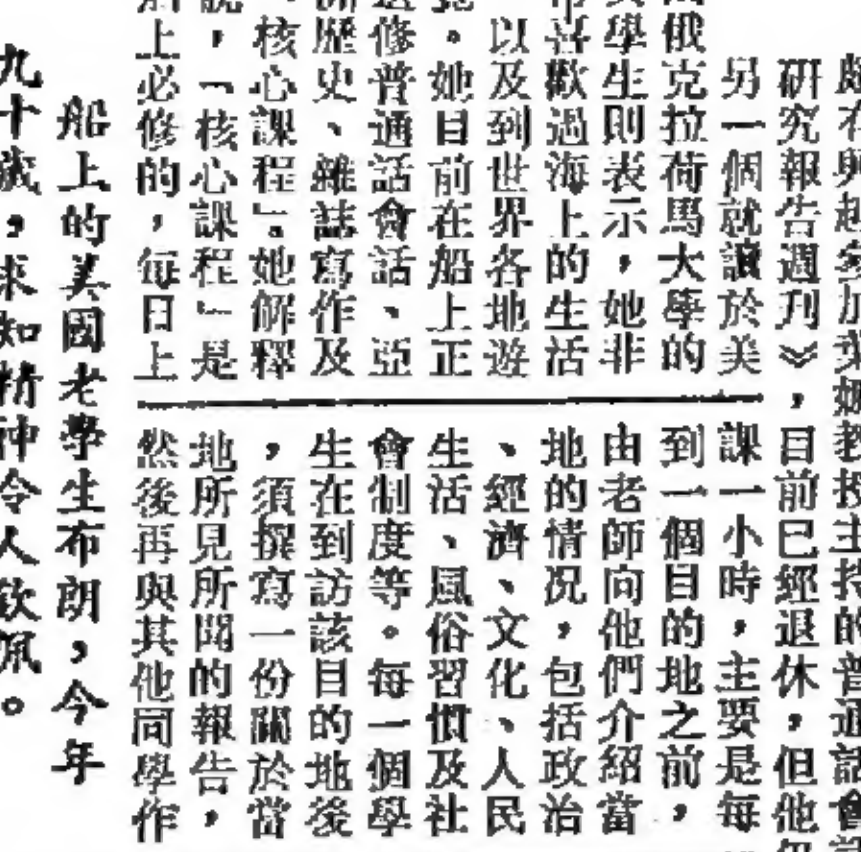 教授主持的普通話會
研究報告週刊》，目前已經退休，但他仍
另一個就讀於美
俄克拉荷馬大學的
學生則表示，她非
喜歡過海上的生活
以及到世界各地遊
覽。她目前在船上正
選修普通話會話、亞
洲歷史、雜誌寫作及
核心課程」。她解釋
說，「核心課程」是
船上必修的，每日上
課一小時，主要是每
到一個目的地之前，
由老師向他們介紹當
地的情況，包括政治
、經濟、文化、人民
生活、風俗習慣及社
會制度等。每一個學
生在到訪該目的地後
，須撰寫一份關於當
地所見所聞的報告，
然後再與其他同學作
船上的美國老學生布朗，今年
九十歲，求知精神令人欽佩。